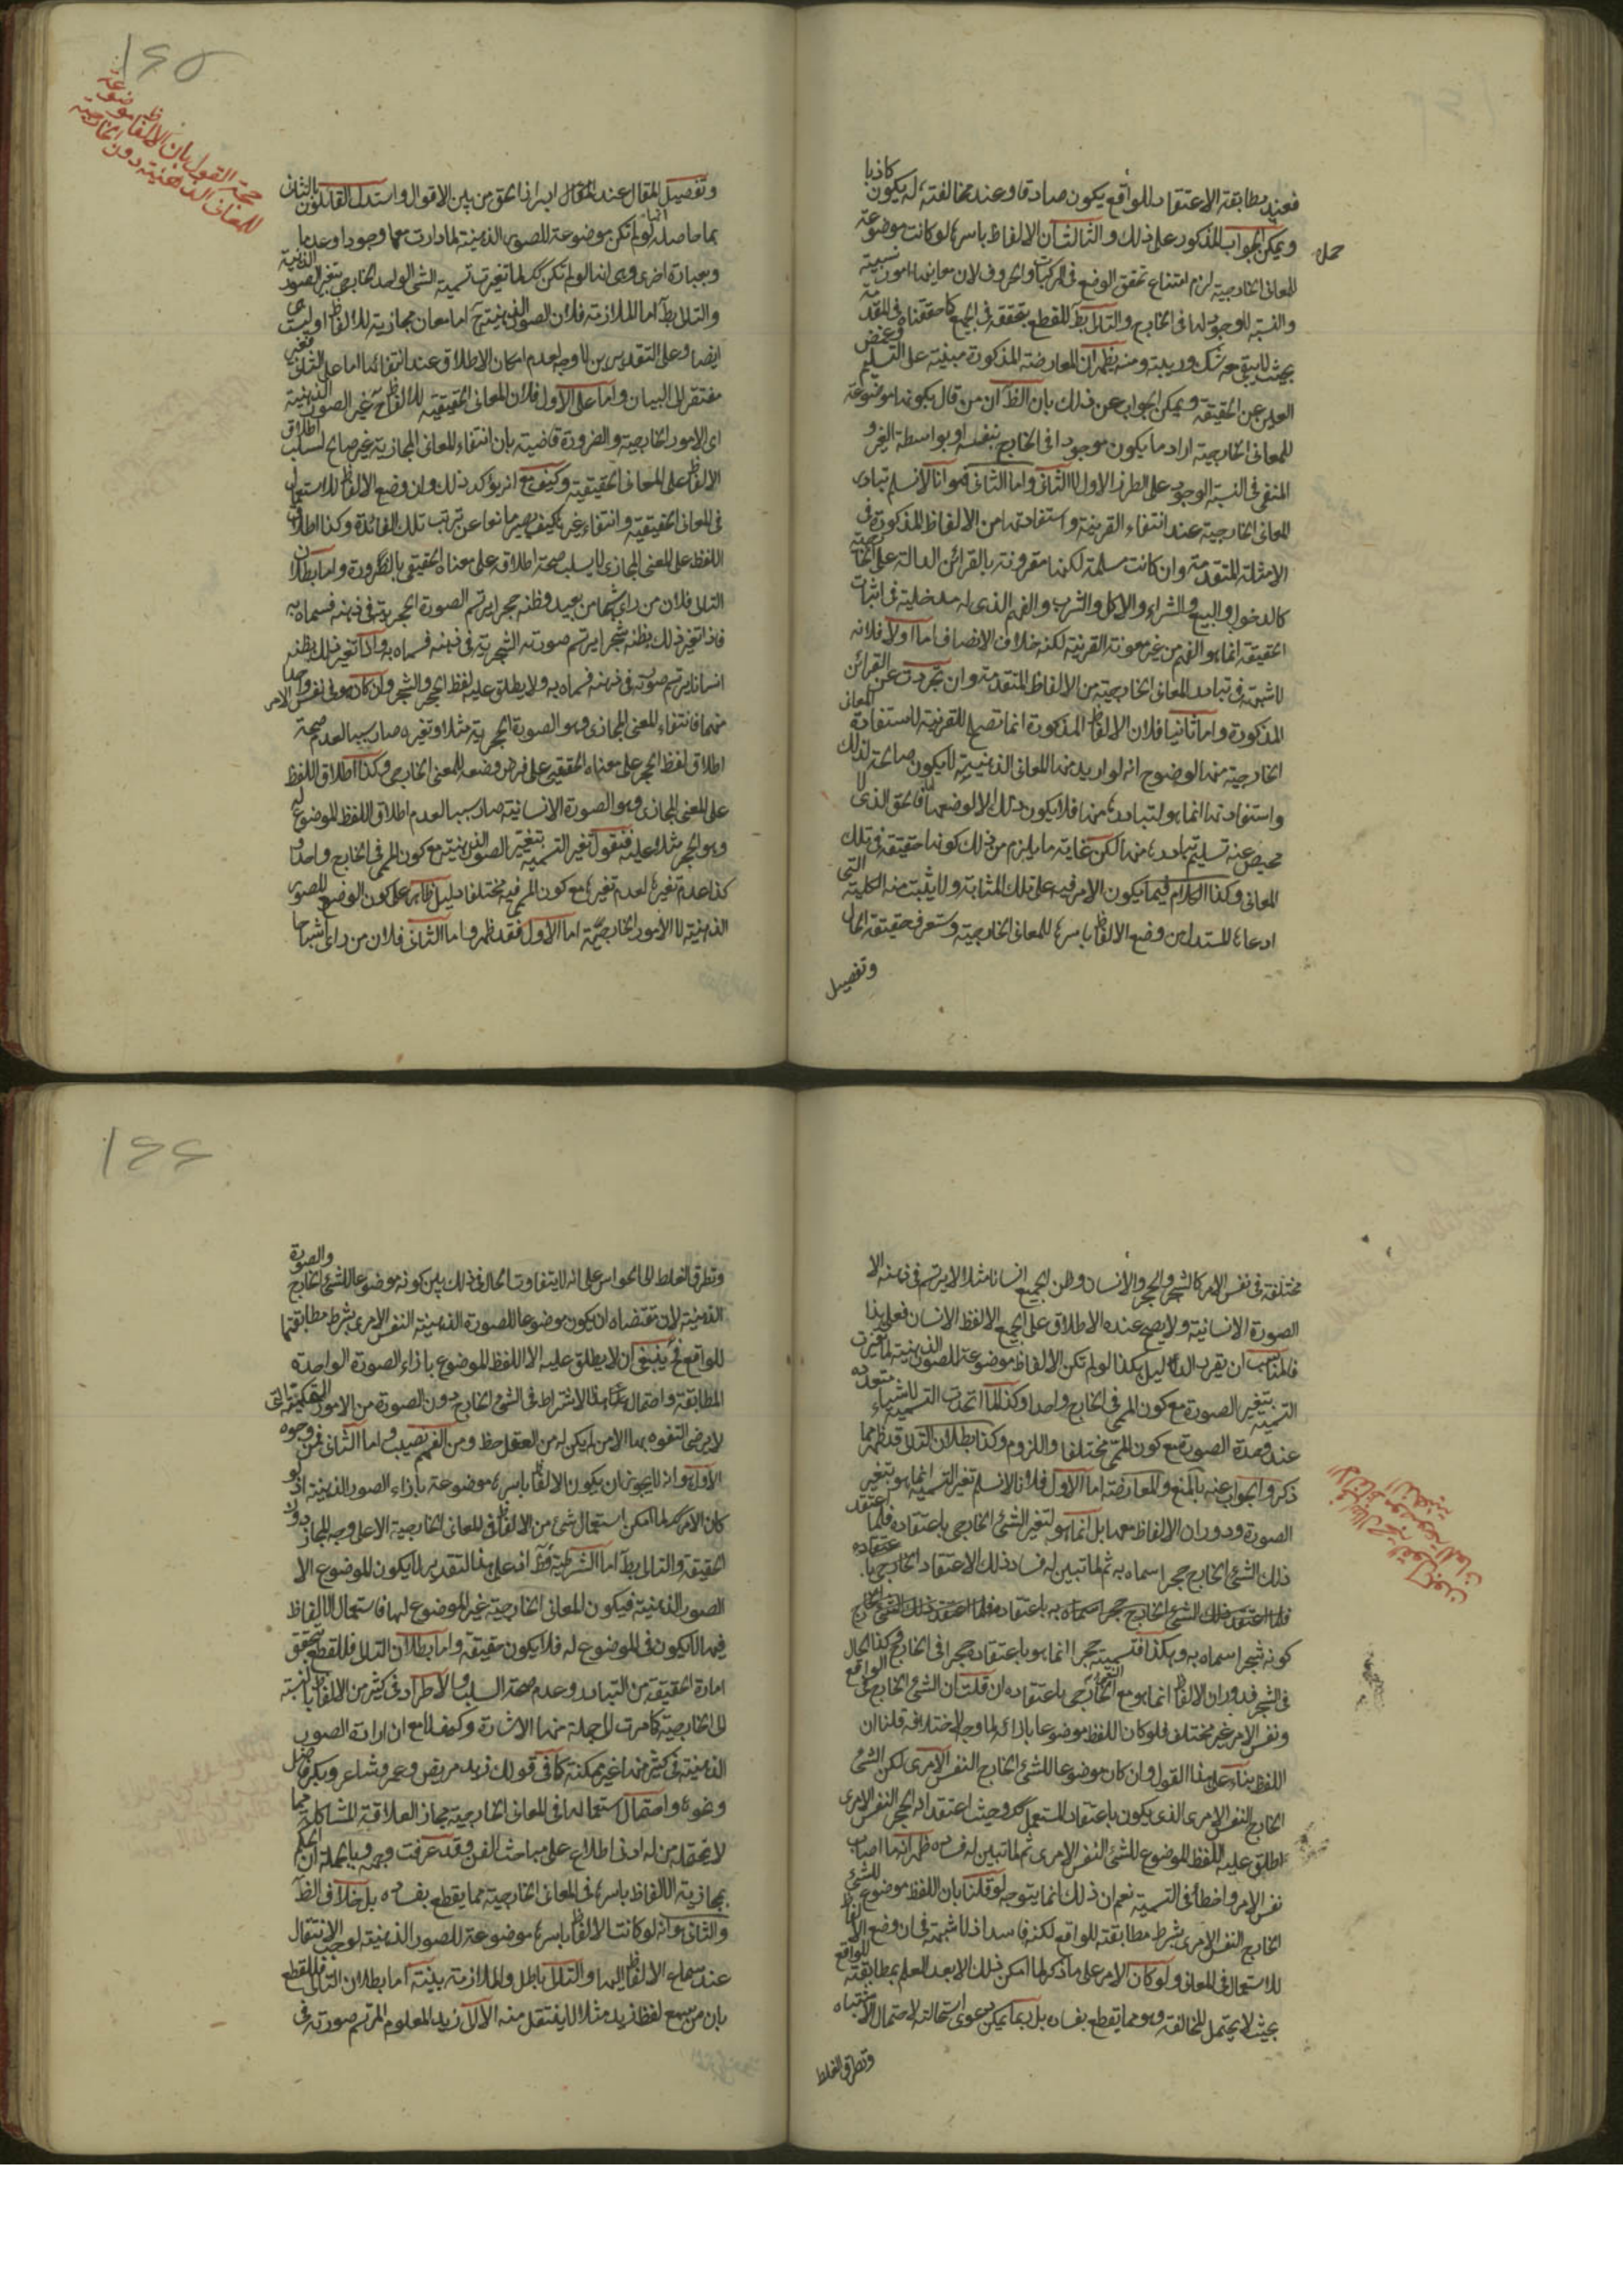 فعند مطابقة الاعتقاد للواقع يكون صادقا وعند مخالفته له يكون كاذبا
ويمكن الجواب المذكور على ذلك والثالث ان الالفاظ باسرها لو كانت موضوعة
للمعانى الخارجية لزم امتناع تحقق الوضع فى المركبات والحروف لان معانيها امور نسبية
والنسبة لا وجود لها فى الخارج والتالى بط للقطع بتحققه فى الجميع كما حققناه فى المقدمة
بحيث لا يبقى معه شك وريبة ومنه يظهر ان المعارضة المذكورة مبنية على التسليم
العدين عن الحقيقة ويمكن الجواب عن ذلك بان الظ ان من قال بكونها موضوعة
للمعانى الخارجية اراد ما يكون موجودا فى الخارج بنفسه او بواسطة الغير و
المنفى فى النسبة الوجود على الطرز الاول لا الثانى واما الثانى فهو انا لا نسلم تبادر
المعانى الخارجية عند انتفاء القرينة واستفادتها من الالفاظ المذكورة فى
الامثلة المتقدمة وان كانت مسلمة لكنها مقرونة بالقرائن الدالة على الخارجية
كالدخول والبيع والشراء والاكل والشرب والفهم الذى له مدخلية فى اثبات
الحقيقة انما هو الفهم من غير معونة القرينة لكنه خلاف الانصاف اما اولا فلانه
لا شبهة فى تبادر المعانى الخارجية من الالفاظ المتقدمة وان تجردت عن القرائن
المذكورة واما ثانيا فلان الالفاظ المذكورة انما تصلح للقرينة لاستفادة المعانى
الخارجية منها لوضوح انه لو اريد منها المعانى الذهنية لا يكون صالحة لذلك
واستفادتها انما هو لتبادرها منها فلا يكون ذلك الا لوضعها لها فالحق الذى لا
محيص عنه تسليم تبادرها منها لكن غاية ما يلزم من ذلك كونها حقيقة فى تلك
المعانى وكذا الكلام فيما يكون الامر فيه على تلك المثابة ولا يثبت منه الكلية التى
ادعاها المستدل من وضع الالفاظ باسرها للمعانى الخارجية وستعرف حقيقة الحال
وتفصيل
١٤٥
حجة القول بان الالفاظ موضوعة
للمعانى الذهنية دون الخارجية
وتفصيل المقال عند المقال ابراز الحق من بين الاقوال واستدل القائلون بالثانى
بما حاصله انها لو لم تكن موضوعة للصور الذهنية لما دارت معها وجودا وعدما
وبعبارة اخرى وهى انها لو لم تكن كك لما تغيرت تسمية الشئ الواحد الخارجى بتغير الصور الذهنية
والتالى بط اما الملازمة فلان الصور الذهنية ح اما معان مجازية للالفاظ او ليست هى
ايضا وعلى التقديرين لا وجه لعدم امكان الاطلاق عند انتفائها اما على الثانى فغير
مفتقر الى البيان واما على الاول فلان المعانى الحقيقية للالفاظ ح غير الصور الذهنية
اى الامور الخارجية والضرورة قاضية بان انتفاء المعانى المجازية غير صالح لسلب اطلاق
الالفاظ على المعانى الحقيقية وكيف مع انه يؤكد ذلك وان وضع الالفاظ للاستعمال
فى المعانى الحقيقية وانتفاء غيرها كيف يصير مانعا عن ترتب تلك الفائدة وكذا اطلاق
اللفظ على المعنى المجازى لا يسلب صحة اطلاقه على معناه الحقيقى بالضرورة واما بطلان
التالى فلان من راى شبحا من بعيد وظنه حجرا يرتسم الصورة الحجرية فى ذهنه فسماه به
فاذا تغير ذلك بظنه شجرا يرتسم صورته الشجرية فى ذهنه فسماه به واذا تغير ذلك بظنه
انسانا يرتسم صورته فى ذهنه فسماه به ولا يطلق عليه لفظ الحجر والشجر وان كان هو فى نفس الامر واحدا
منهما فانتفاء المعنى المجازى وهو الصورة الحجرية مثلا وتغيره صار سببا لعدم صحة
اطلاق لفظ الحجر على معناه الحقيقى على فرض وضعه للمعنى الخارجى وكذا اطلاق اللفظ
على المعنى المجازى وهو الصورة الانسانية صار سببا لعدم اطلاق اللفظ الموضوع له
وهو الحجر مثلا عليه فنقول تغير التسمية بتغير الصور الذهنية مع كون المسمى فى الخارج واحدا و
كذا عدم تغيرها لعدم تغيرها مع كون المسمى فيه مختلفا دليل ظاهر على كون الوضع للصور
الذهنية لا الامور الخارجية اما الاول فقد ظهر واما الثانى فلان من راى اشباحا
مختلفة فى نفس الامر كالشجر والحجر والانسان وظن الجميع انسانا مثلا لا يرتسم فى ذهنه الا
الصورة الانسانية ولا يصح عنده الاطلاق على الجميع الا لفظ الانسان فعلى هذا
فالمناسب ان يقرب الدليل هكذا لو لم تكن الالفاظ موضوعة للصور الذهنية لما تغيرت
التسمية بتغير الصورة مع كون المسمى فى الخارج واحدا وكذا لما اتحدت التسمية لاشياء متعددة
عند وحدة الصورة مع كون المسمى مختلفا واللزوم وكذا بطلان التالى قد ظهر مما
ذكر والجواب عنه بالمنع والمعارضة اما الاول فلانا لا نسلم تغير التسمية انما هو بتغير
الصورة ودوران الالفاظ معها بل انما هو لتغير الشئ الخارجى باعتقاده فلما اعتقد
ذلك الشئ الخارج حجرا سماه به ثم لما تبين له فساد ذلك الاعتقاد الخارج باعتقاده
فلما اعتقد ذلك الشئ الخارج حجرا سماه به باعتقاده فلما اعتقد ذلك الشئ الخارج
كونه شجرا سماه به وهكذا فتسميته حجرا انما هو باعتقاده حجرا فى الخارج وكذا الحال
فى الشجر فدوران الالفاظ انما هو مع الخارجى باعتقاده ان قلت ان الشئ الخارجى الواقع
ونفس الامر غير مختلف فلو كان اللفظ موضوعا بازائه لما وجه لاختلافه قلنا ان
اللفظ بناء على هذا القول وان كان موضوعا للشئ الخارج النفس الامرى لكن الشئ
الخارج النفس الامرى الذى يكون باعتقاد المستعمل كك وحيث اعتقد انه الحجر النفس الامرى
اطلق عليه اللفظ الموضوع للشئ النفس الامرى ثم لما تبين له فساده ظهر انه ما اصاب
نفس الامر واخطأ فى التسمية نعم ان ذلك انما يتوجه لو قلنا بان اللفظ موضوع للشئ
الخارج النفس الامرى بشرط مطابقته للواقع لكنه فاسد اذ لا شبهة فى ان وضع الالفاظ
للاستعمال فى المعانى ولو كان الامر على ما ذكر لما امكن ذلك الا بعد العلم بمطابقته للواقع
بحيث لا يحتمل المخالفة وهو مما يقطع بفساده بل ربما يمكن دعوى استحالته لاحتمال الاشتباه
وتطرق الغلط
١٤٤
وتطرق الغلط الى الحواس على انه لا يتفاوت الحال فى ذلك بين كونه موضوعا للشئ الخارج والصورة
الذهنية لان مقتضاه ان يكون موضوعا للصورة الذهنية النفس الامرى بشرط مطابقتها
للواقع فح ينبغى ان لا يطلق عليه الا اللفظ الموضوع بازاء الصورة الواحدة
المطابقة واحتمال هذا الاشتراط فى الشئ الخارج دون الصورة من الامور التحكمية التى
لا يرضى التفوه بها الا من لم يكن له من العقل حظ ومن الفهم نصيب واما الثانى فمن وجوه
الاول هو انه لا يجوز ان يكون الالفاظ باسرها موضوعة بازاء الصور الذهنية اذ لو
كان الامر كك لما امكن استعمال شئ من الالفاظ فى المعانى الخارجية الا على وجه المجاز دون
الحقيقة والتالى بط اما الشرطية فظ انه على هذا التقدير لا يكون الموضوع الا
الصور الذهنية فيكون المعانى الخارجية غير الموضوع لها فاستعمال الالفاظ
فيها لا يكون فى الموضوع له فلا يكون حقيقة واما بطلان التالى فللقطع بتحقق
امارة الحقيقة من التبادر وعدم صحة السلب والاطراد فى كثير من الالفاظ بالنسبة
الى الخارجية كما مرت الى جملة منها الاشارة وكيف لا مع ان ارادة الصور
الذهنية فى كثير منها غير ممكنة كما فى قولك زيد مريض وعمرو شاعر وبكر فاضل
ونحوها واحتمال استعمالها فى المعانى الخارجية مجازا لعلاقة المشاكلة مما
لا يحتمله من له ادنى اطلاع على مباحث الفن وقد عرفت وجهه وبالجملة ان الحكم
بمجازية الالفاظ باسرها فى المعانى الخارجية مما يقطع بفساده بل خلاف الظ
والثانى هو انه لو كانت الالفاظ باسرها موضوعة للصور الذهنية لوجب الانتقال
عند سماع الالفاظ اليها والتالى باطل والملازمة بينة اما بطلان التالى فللقطع
بان من سمع لفظ زيد مثلا لا ينتقل منه الا الى زيد المعلوم المرتسم صورته فى